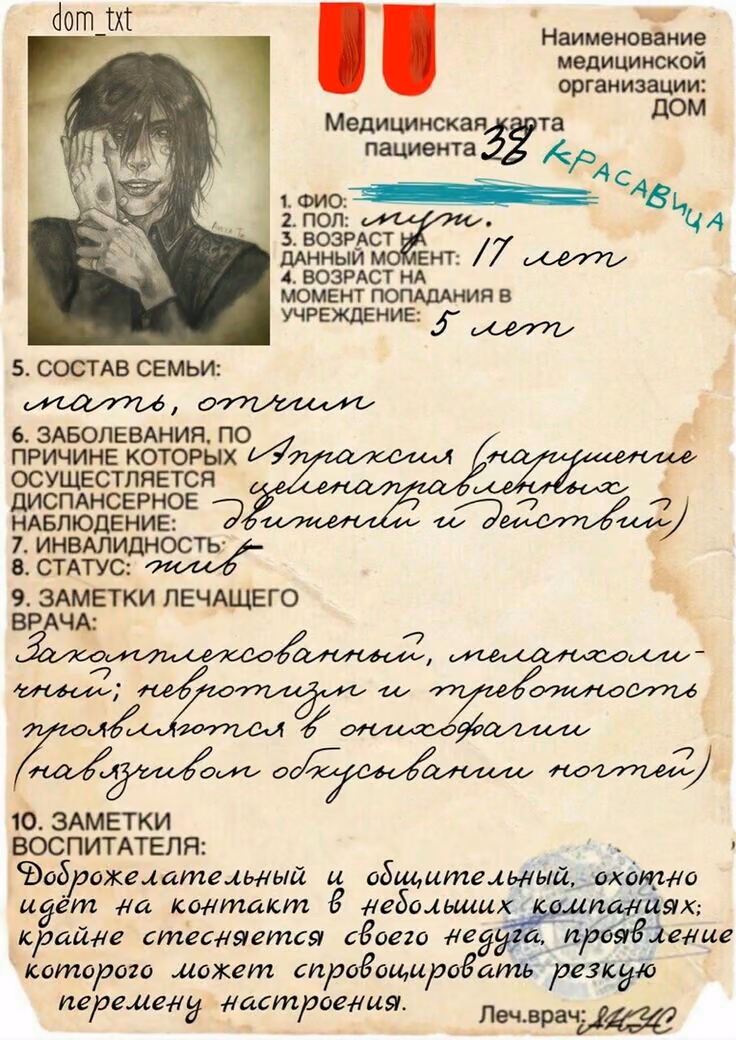 dom_txt
Наименование
медицинской
организации:
ДОМ
Медицинская карта
пациента 38
КРАСАВИЦА
1. ФИО:
2. ПОЛ: муж.
3. ВОЗРАСТ НА
ДАННЫЙ МОМЕНТ: 17 лет
4. ВОЗРАСТ НА
МОМЕНТ ПОПАДАНИЯ В
УЧРЕЖДЕНИЕ: 5 лет
5. СОСТАВ СЕМЬИ:
мать, отчим
6. ЗАБОЛЕВАНИЯ, ПО
ПРИЧИНЕ КОТОРЫХ Апраксия (нарушение
ОСУЩЕСТЛЯЕТСЯ целенаправленных
ДИСПАНСЕРНОЕ
НАБЛЮДЕНИЕ: движений и действий)
7. ИНВАЛИДНОСТЬ: –
8. СТАТУС: жив
9. ЗАМЕТКИ ЛЕЧАЩЕГО
ВРАЧА:
Закомплексованный, меланхоли-
чный; невротизм и тревожность
проявляются в онихофагии
(навязчивом обкусывании ногтей)
10. ЗАМЕТКИ
ВОСПИТАТЕЛЯ:
Доброжелательный и общительный, охотно
идёт на контакт в небольших компаниях;
крайне стесняется своего недуга, проявление
которого может спровоцировать резкую
перемену настроения.
Леч.врач: ЯНУС